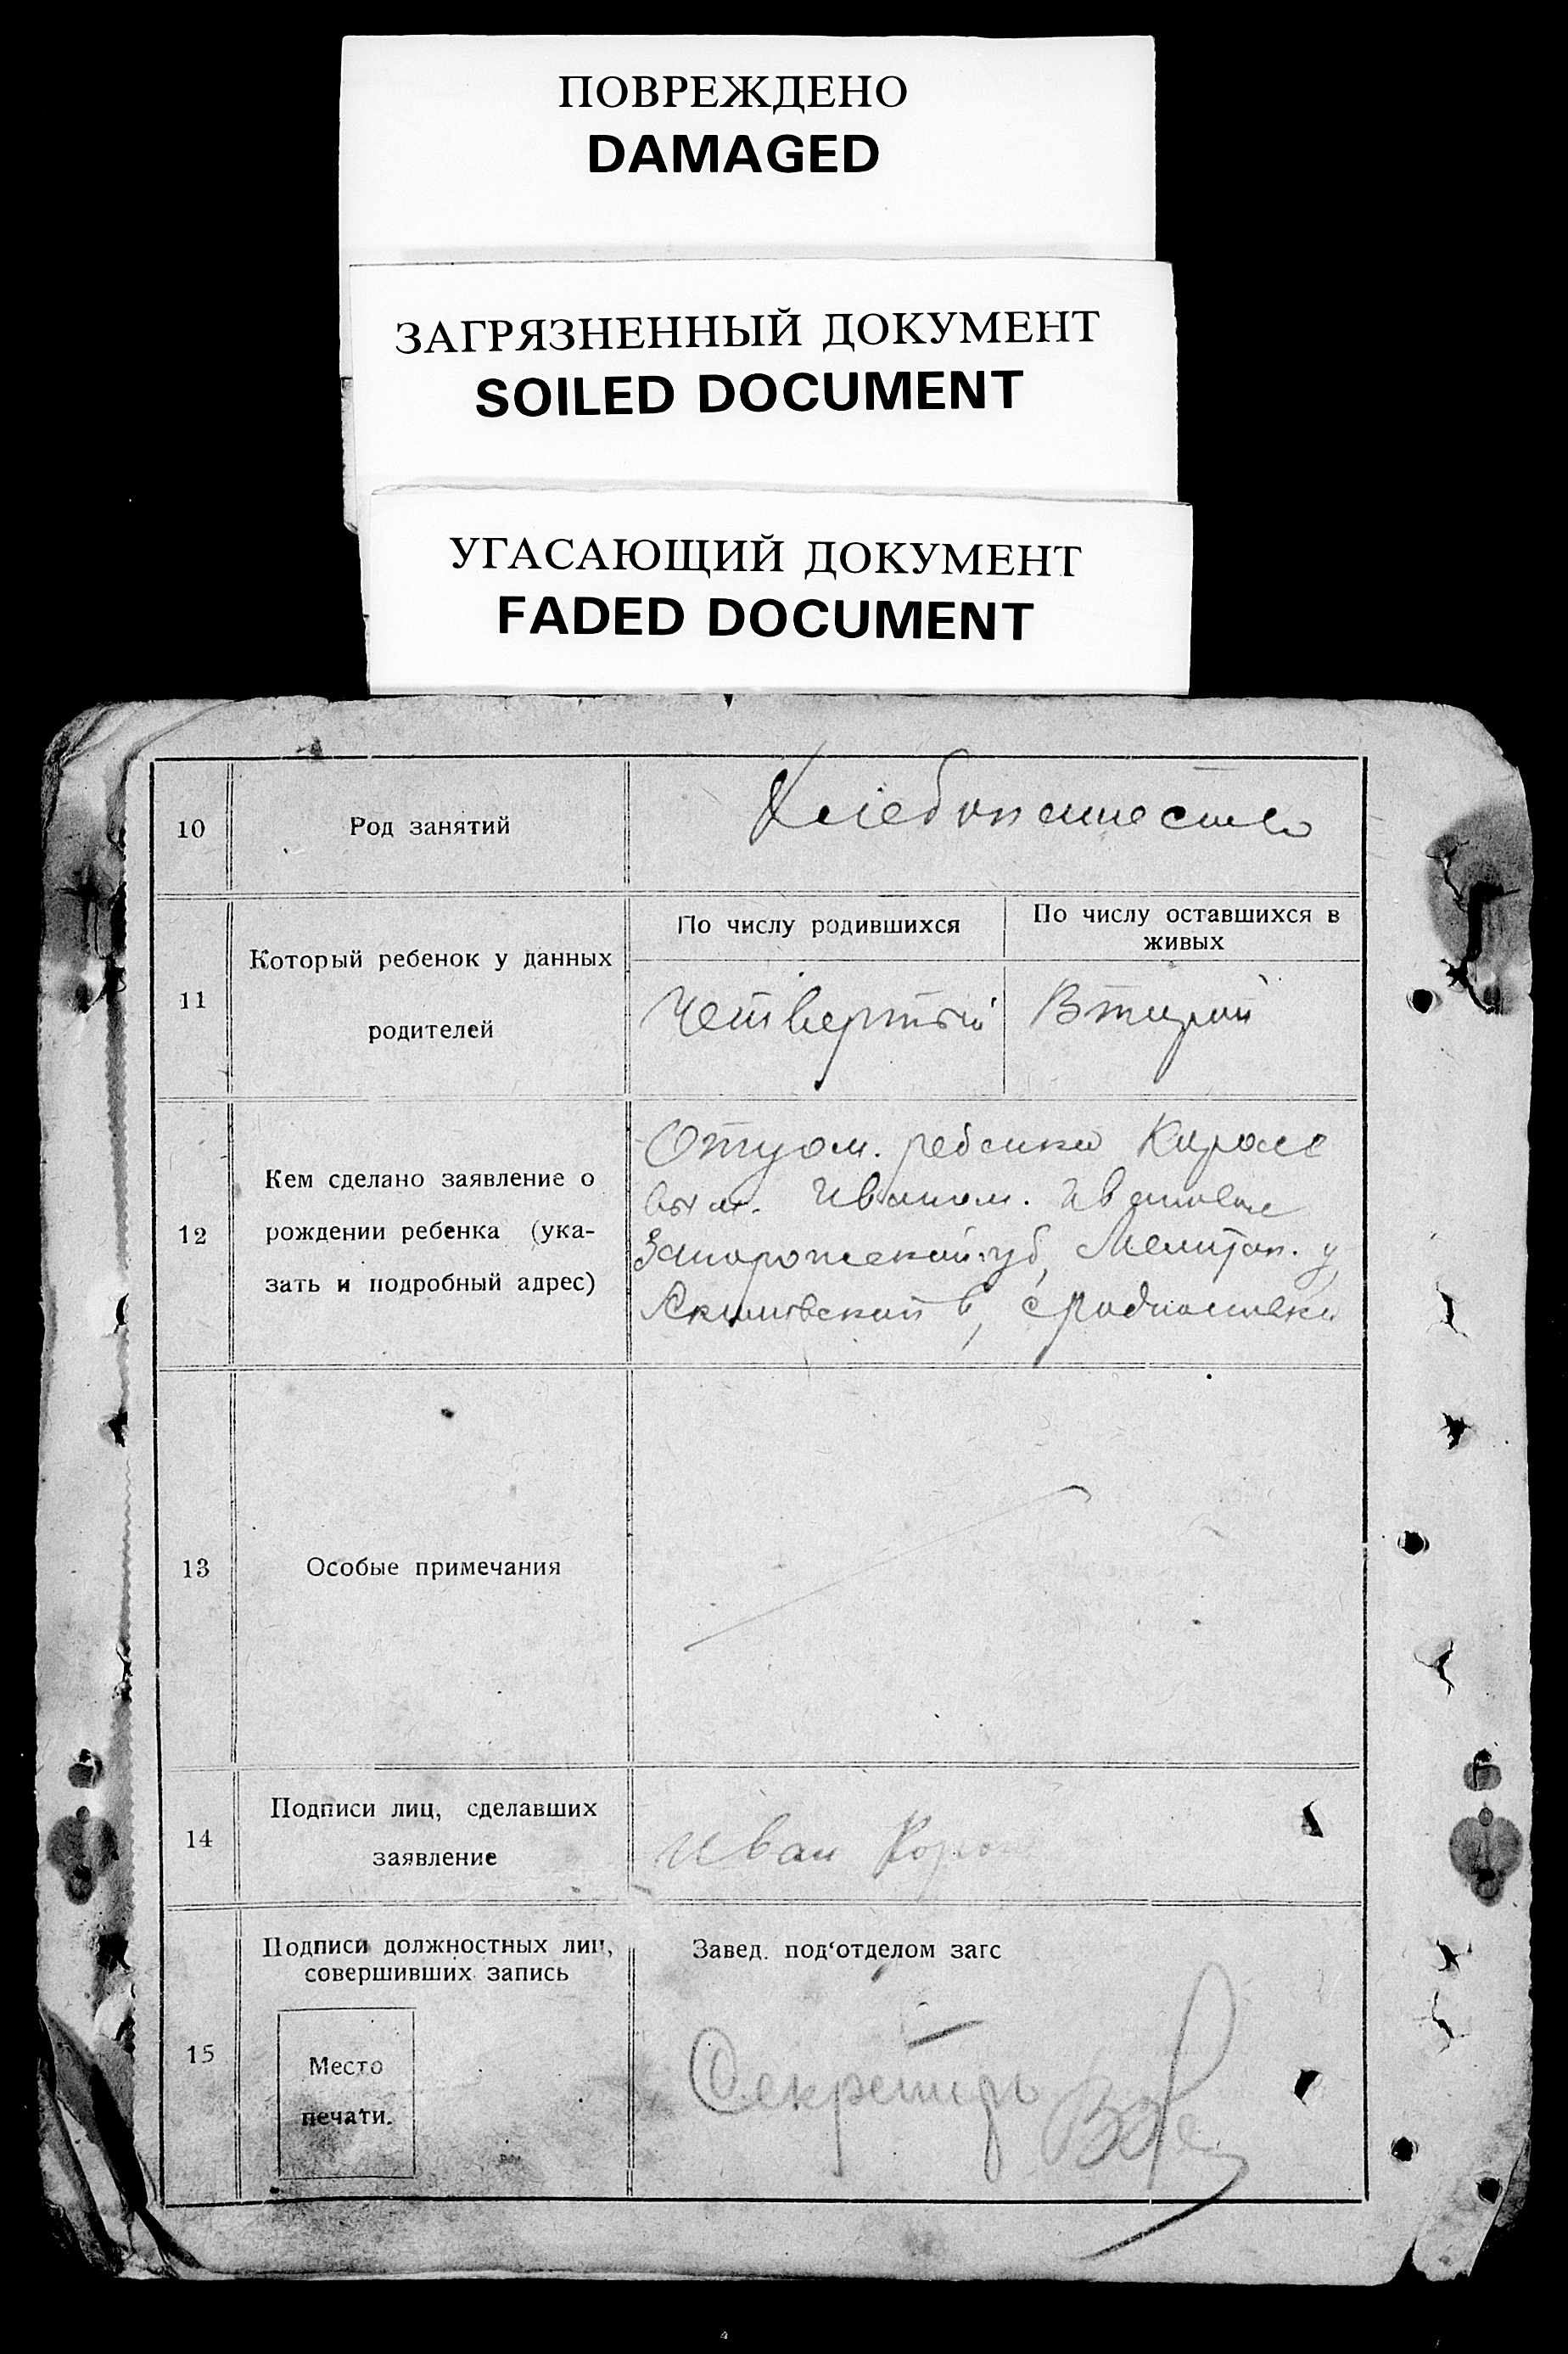 ПОВРЕЖДЕНО
DAMAGED
ЗАГРЯЗНЕННЫЙ ДОКУМЕНТ
SOILED DOCUMENT
УГАСАЮЩИЙ ДОКУМЕНТ
FADED DOCUMENT
10
Род занятий
Хлебопашество
11
Который ребенок у данных
родителей
По числу родившихся
Четвертый
По числу оставшихся в
живых
Второй
12
Кем сделано заявление о
рождении ребенка (ука-
зать и подробный адрес)
Отцом. ребенка
вым. Иваном.
Запорожской губ, Мелитоп. у,
Акимовской в,
13
Особые примечания
14
Подписи лиц, сделавших
заявление
Иван
15
Подписи должностных лиц,
совершивших запись
Место
печати.
Завед. под‘отделом загс
Секретарь